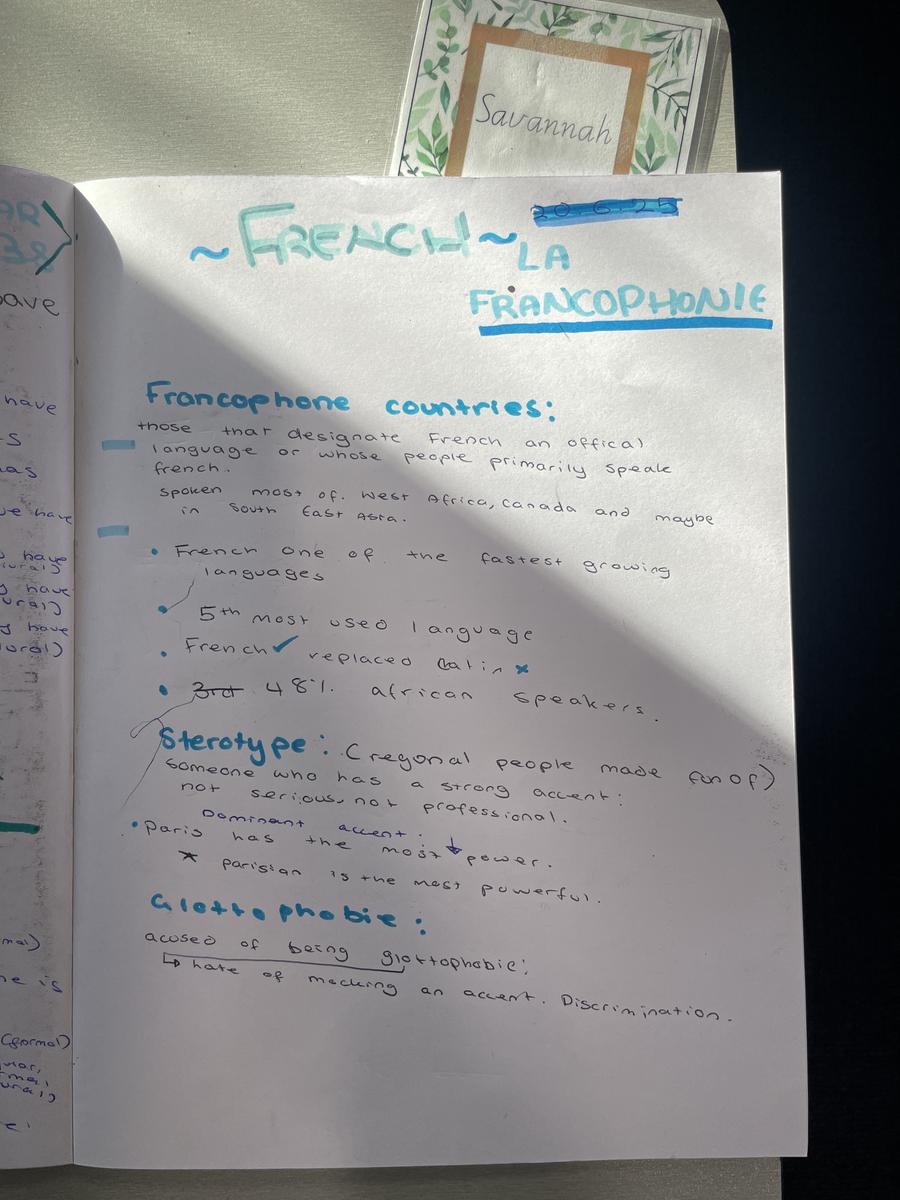 Savannah
20.6.25
~ FRENCH ~
LA
FRANCOPHONIE
AR
38
ave
have
s
as
ve have
have
have
have
Francophone countries:
those that designate French an offical
language or whose people primarily speak
french.
spoken most of. West Africa, Canada and maybe
in South East Asia.
• French one of the fastest growing
languages
• 5th most used language
• French ✓ replaced Latin x
• 3rd 48% african speakers.
Sterotype: (regonal people made fun of)
someone who has a strong accent:
not serious, not professional.
Dominant accent: ↓
• Paris has the most power.
* parisian is the most powerful.
Glottophobie:
acused of being glottophobie:
↳ hate of mocking an accent. Discrimination.
mal)
ne is
(formal)